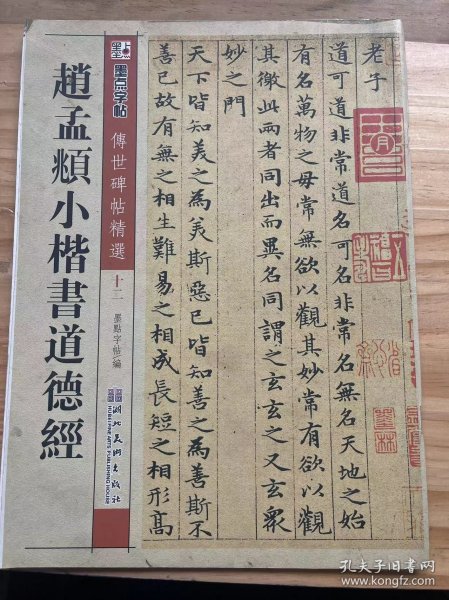 趙孟頫小楷書道德經
墨点字帖
傳世碑帖精選
十二
墨點字帖/編
湖北美术出版社
HUBEI FINE ARTS PUBLISHING HOUSE
老子
道可道非常道名可名非常名無名天地之始
有名萬物之母常無欲以觀其妙常有欲以觀
其徼此兩者同出而異名同謂之玄玄之又玄衆
妙之門
天下皆知美之為美斯惡已皆知善之為善斯不
善已故有無之相生難易之相成長短之相形高
孔夫子旧书网
kongfz.com